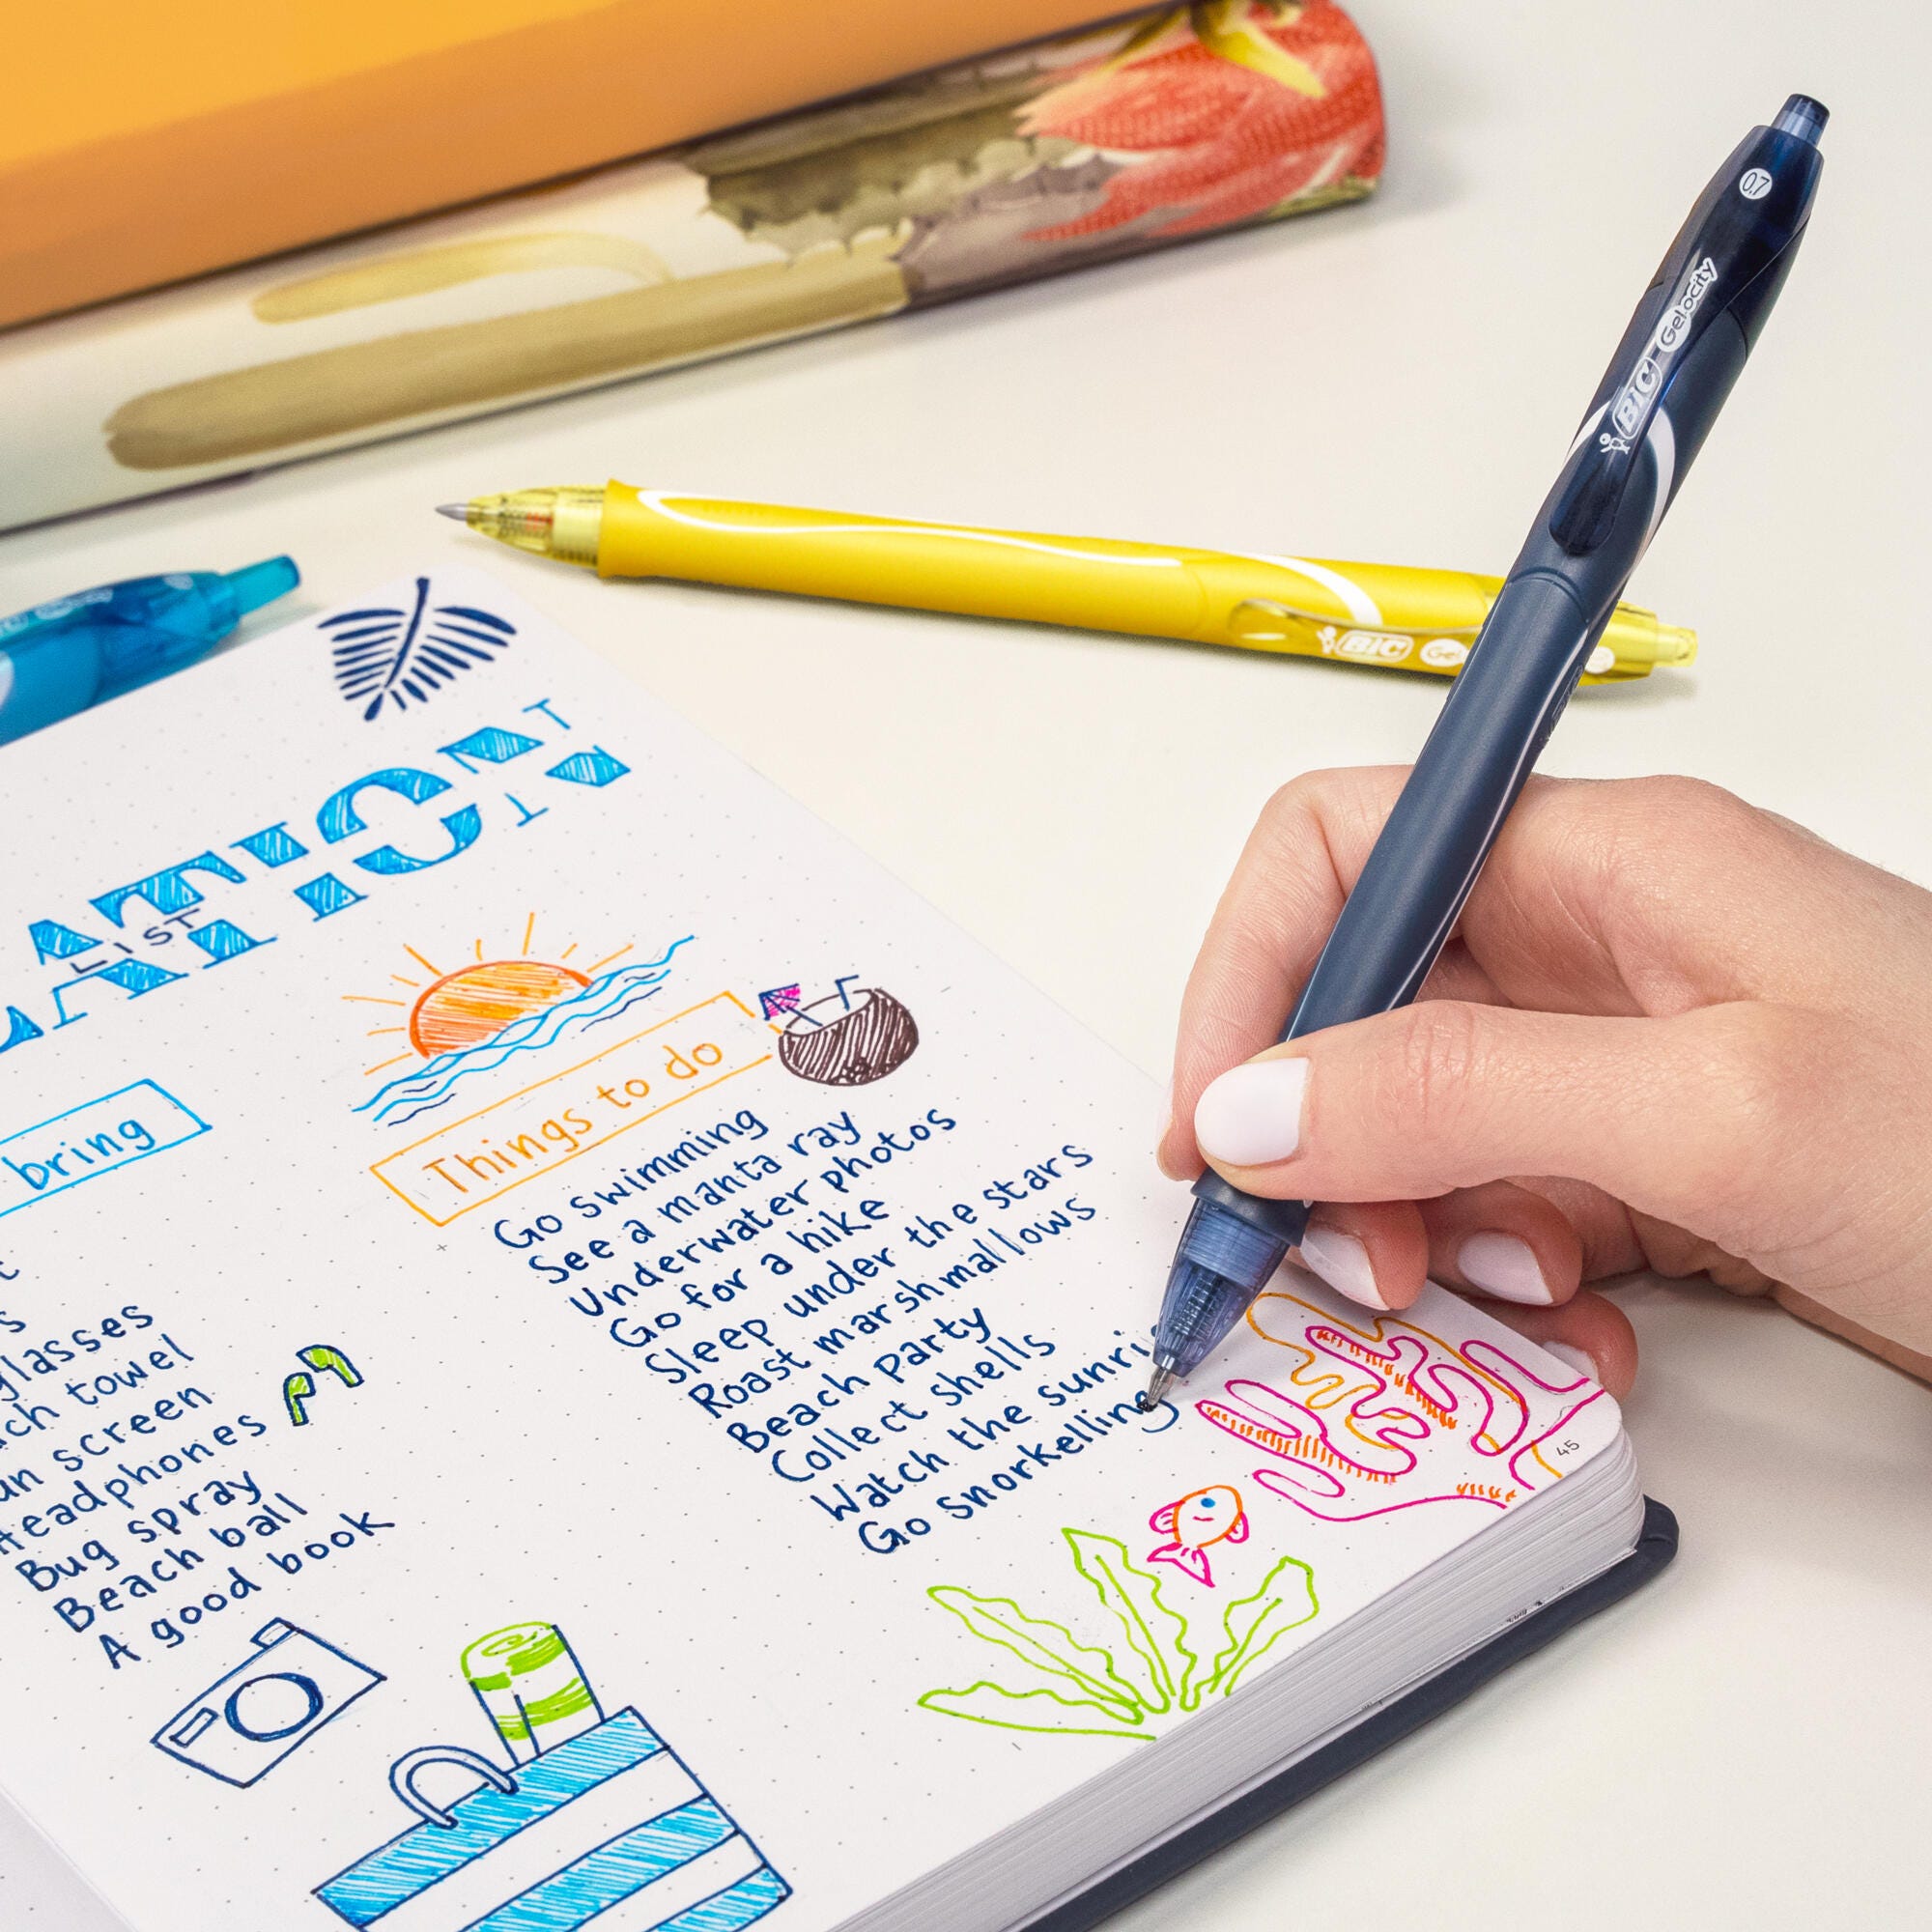 0.7
BIC Gelocity
BIC Gel
ATION
LIST
bring
glasses
towel
screen
Headphones
Bug spray
Beach ball
A good book
Things to do
Go swimming
See a manta ray
Underwater photos
Go for a hike
Sleep under the stars
Roast marshmallows
Beach party
Collect shells
Watch the sunri
Go snorkelling
45